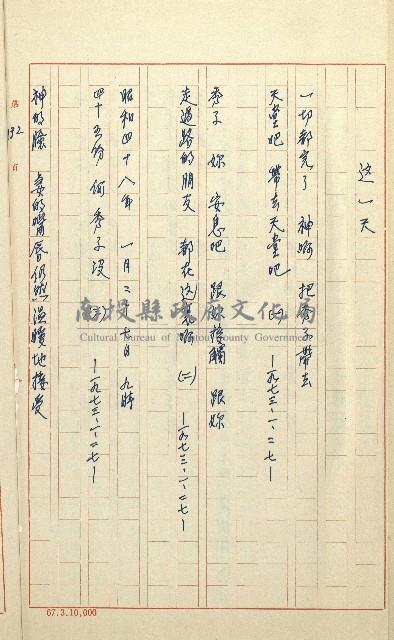 这一天
一切都完了 神啊 把秀子帶去
天堂吧 帶去天堂吧 (一) —一九七三、一、二七—
秀子 妳 安息吧 跟妳接觸 跟妳
走過路的朋友 都在这兒啊 (二) —一九七三、一、二七—
昭和四十八年 一月二十七日 九時
四十五分 何秀子沒 (三) —一九七三、一、二七—
神的臉 妻的嘴唇仍然溫暖地接受
第 192 頁
南投縣政府文化局
Cultural Bureau of Nantou County Government
67.3.10,000